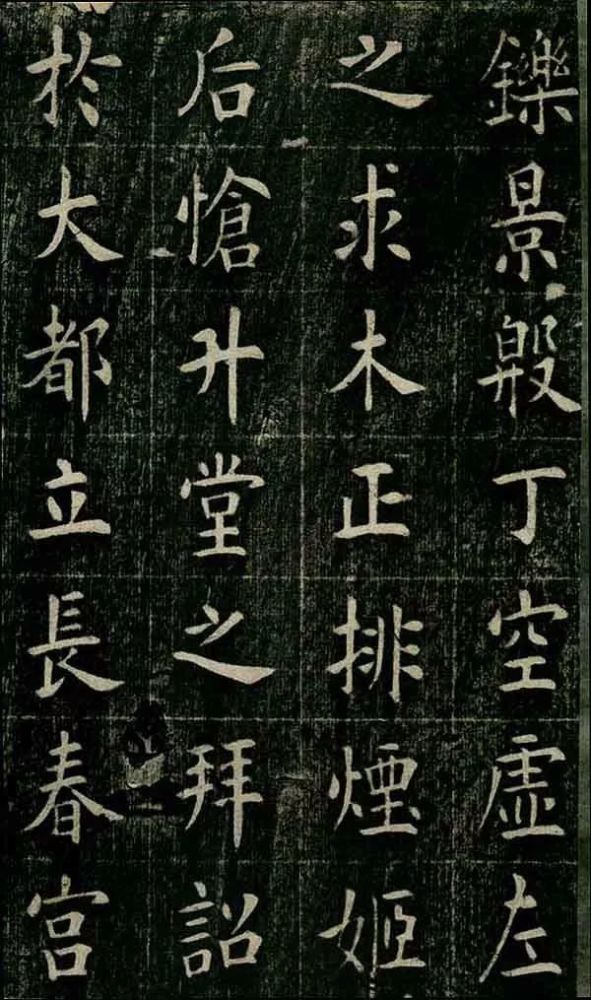 鑠景殷丁空虚左
之求木正排煙姬
后愴升堂之拜詔
於大都立長春宫